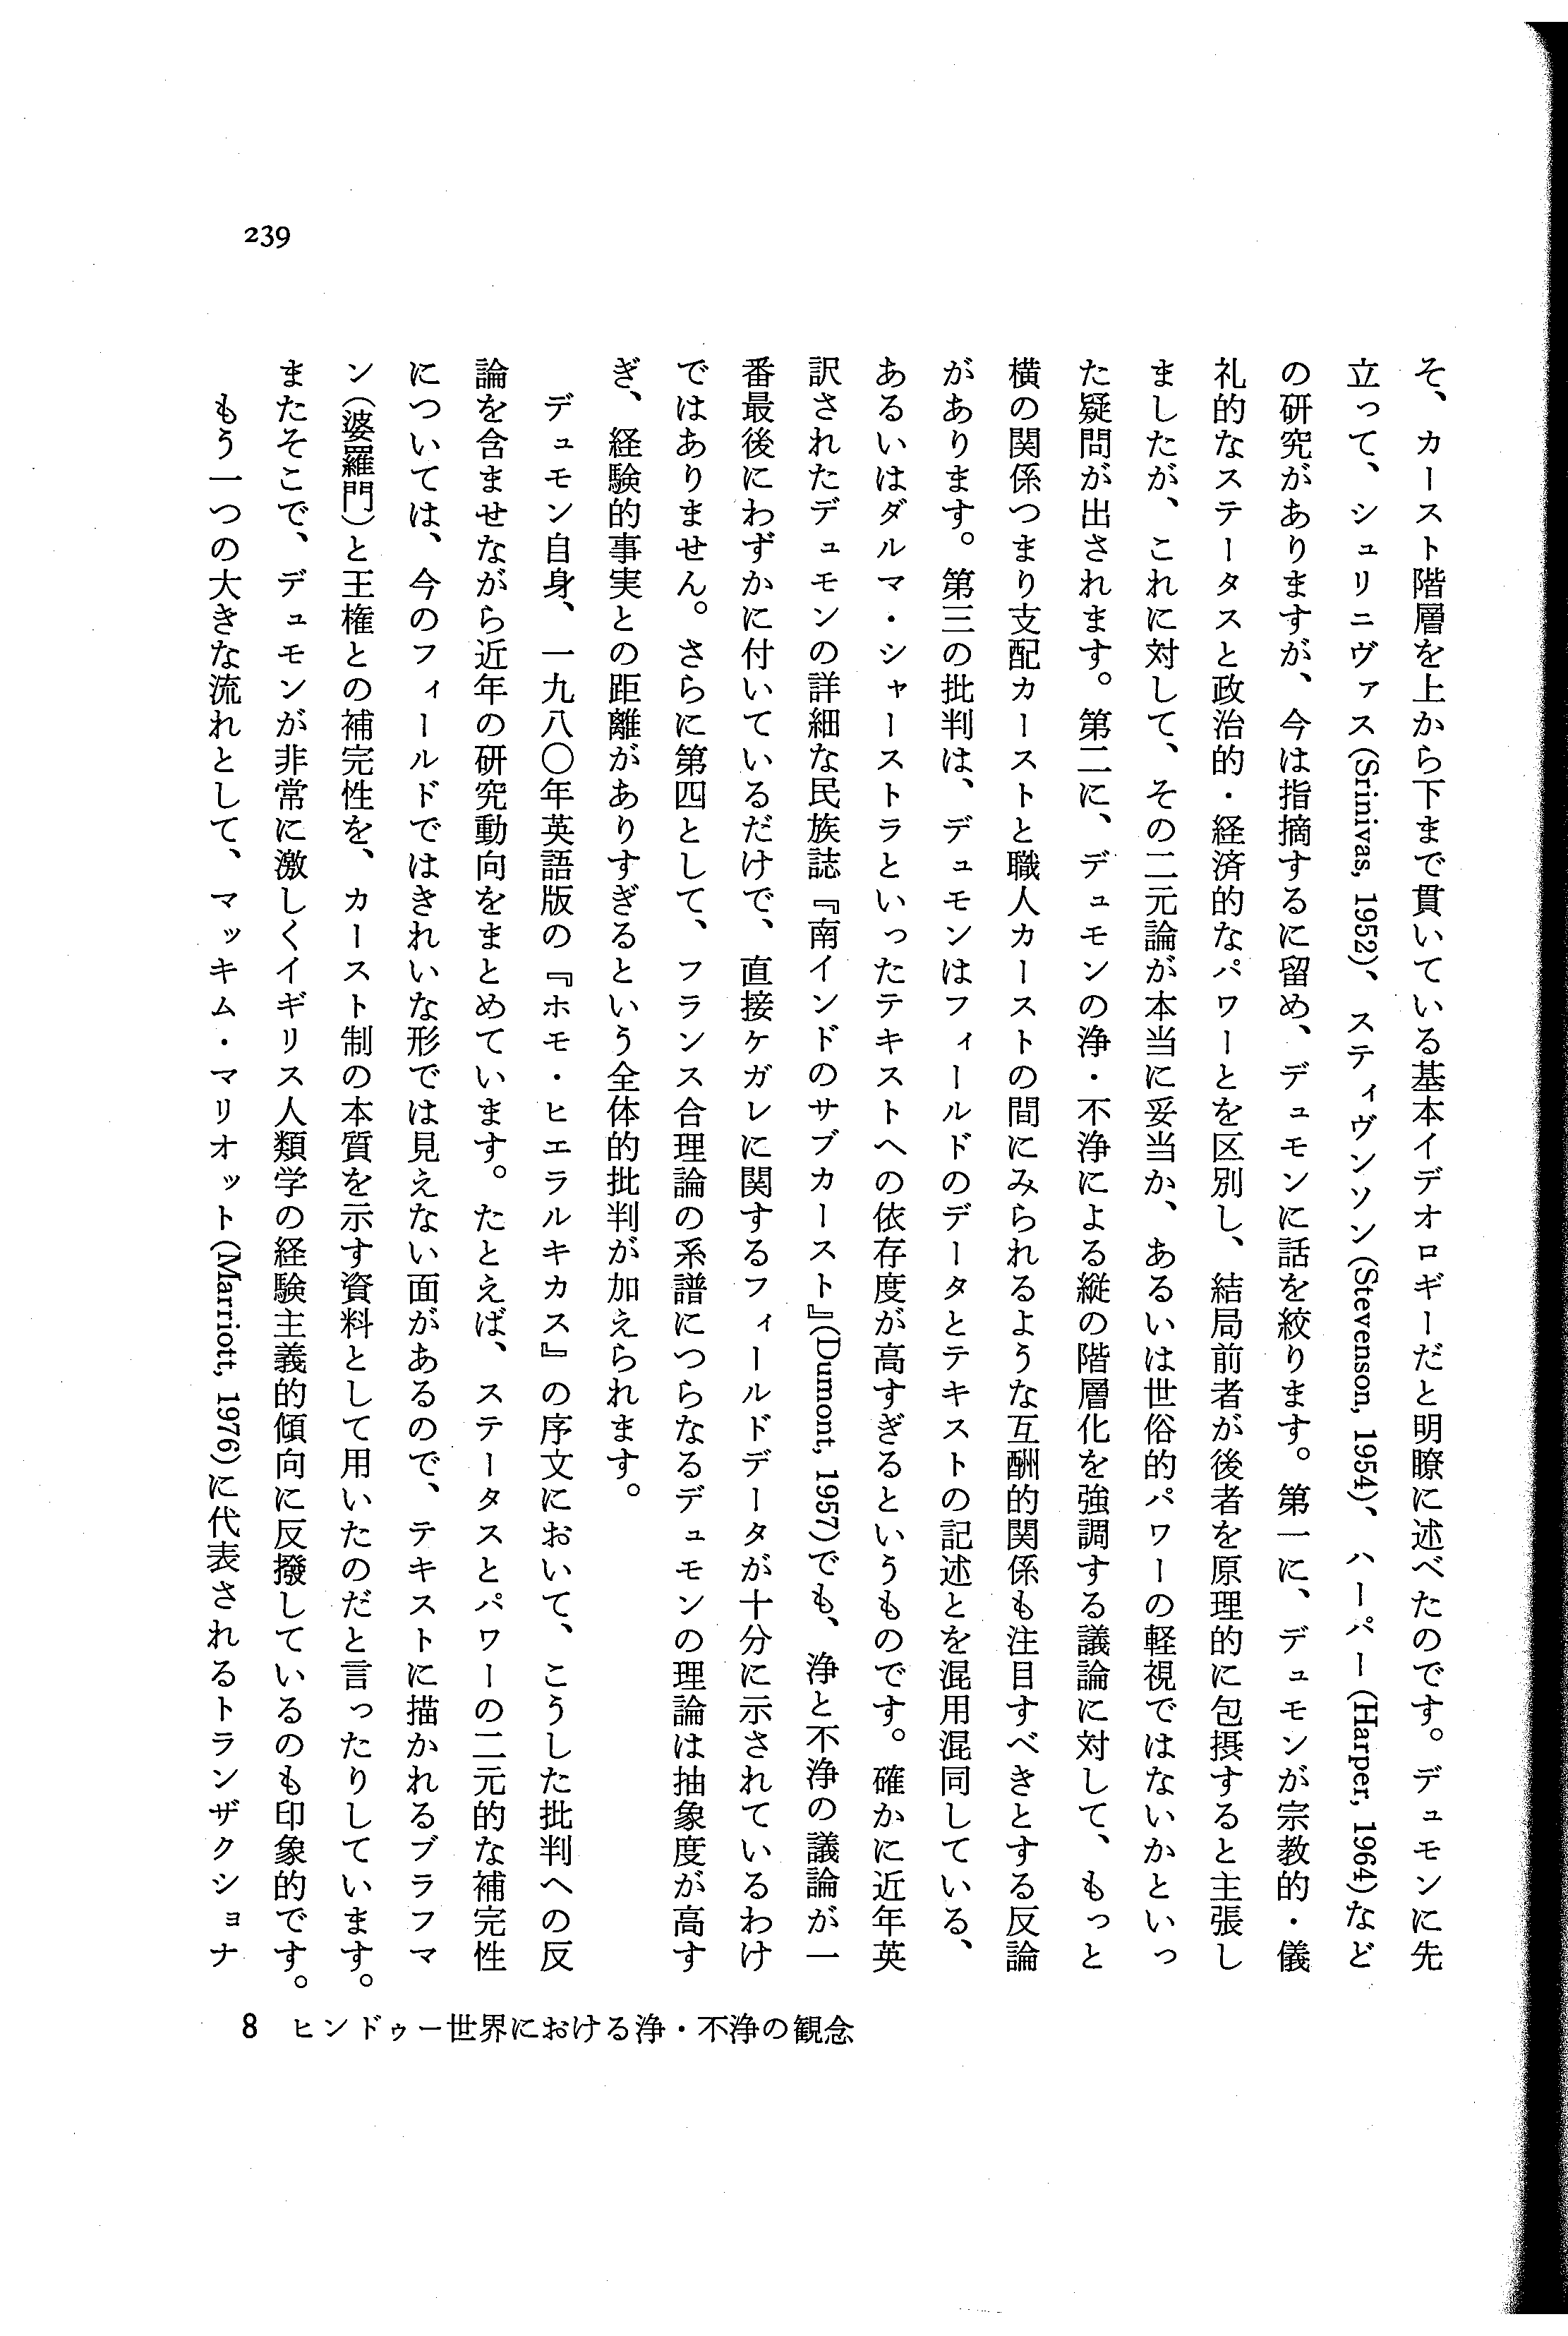 そ、カースト階層を上から下まで貫いている基本イデオロギーだと明瞭に述べたのです。デュモンに先
立って、シュリニヴァス(Srinivas, 1952)、スティヴンソン(Stevenson, 1954)、ハーパー(Harper, 1964)など
の研究がありますが、今は指摘するに留め、デュモンに話を絞ります。第一に、デュモンが宗教的・儀
礼的なステータスと政治的・経済的なパワーとを区別し、結局前者が後者を原理的に包摂すると主張し
ましたが、これに対して、その二元論が本当に妥当か、あるいは世俗的パワーの軽視ではないかといっ
た疑問が出されます。第二に、デュモンの浄・不浄による縦の階層化を強調する議論に対して、もっと
横の関係つまり支配カーストと職人カーストの間にみられるような互酬的関係も注目すべきとする反論
があります。第三の批判は、デュモンはフィールドのデータとテキストの記述とを混用混同している、
あるいはダルマ・シャーストラといったテキストへの依存度が高すぎるというものです。確かに近年英
訳されたデュモンの詳細な民族誌『南インドのサブカースト』(Dumont, 1957)でも、浄と不浄の議論が一
番最後にわずかに付いているだけで、直接ケガレに関するフィールドデータが十分に示されているわけ
ではありません。さらに第四として、フランス合理論の系譜につらなるデュモンの理論は抽象度が高す
ぎ、経験的事実との距離がありすぎるという全体的批判が加えられます。
デュモン自身、一九八〇年英語版の『ホモ・ヒエラルキカス』の序文において、こうした批判への反
論を含ませながら近年の研究動向をまとめています。たとえば、ステータスとパワーの二元的な補完性
については、今のフィールドではきれいな形では見えない面があるので、テキストに描かれるブラフマ
ン(婆羅門)と王権との補完性を、カースト制の本質を示す資料として用いたのだと言ったりしています。
またそこで、デュモンが非常に激しくイギリス人類学の経験主義的傾向に反撥しているのも印象的です。
もう一つの大きな流れとして、マッキム・マリオット(Marriott, 1976)に代表されるトランザクショナ
239
8 ヒンドゥー世界における浄・不浄の観念